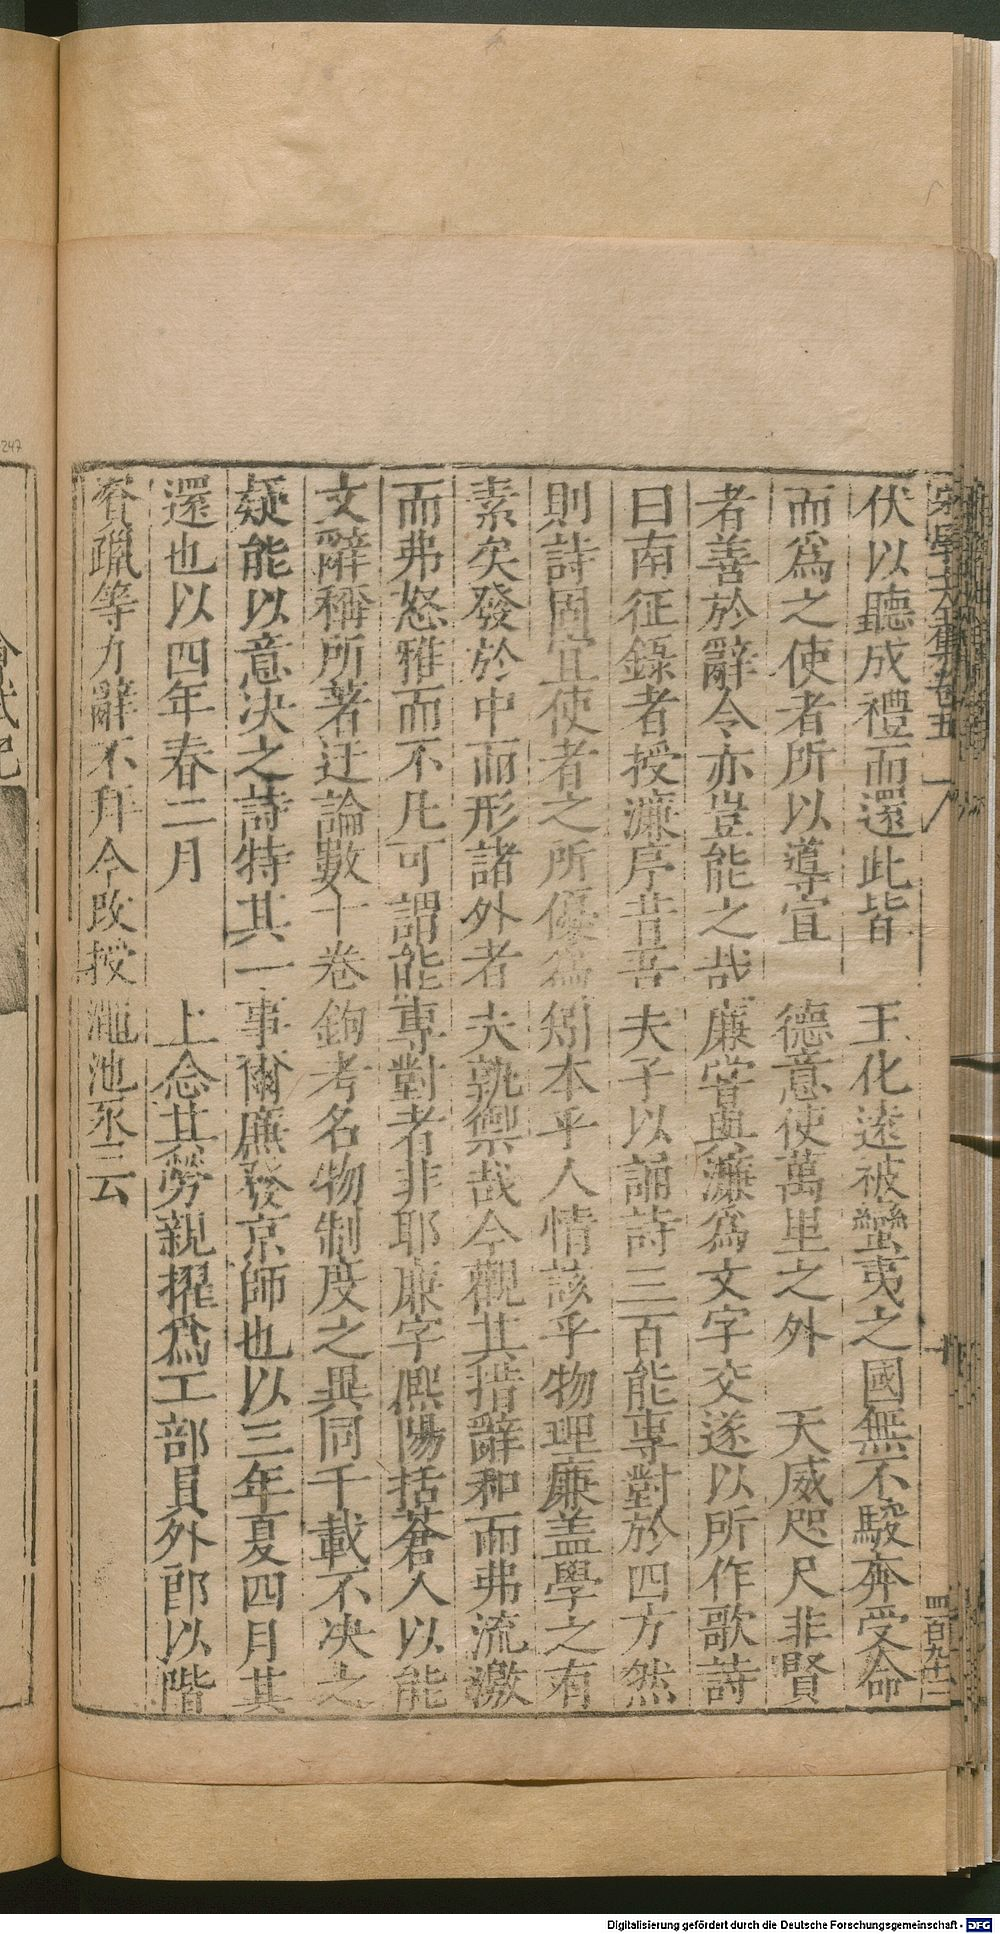 伏以聽成禮而還此皆　王化遠被蠻夷之國無不駿奔受命
而爲之使者所以導宣　德意使萬里之外　天威咫尺非賢
者善於辭令亦豈能之哉廉嘗與濂爲文字交遂以所作歌詩
曰南征錄者授濂序昔吾夫子以誦詩三百能專對於四方然
則詩固宜使者之所優爲矧本乎人情該乎物理廉盖學之有
素矣發於中而形諸外者夫孰禦哉今觀其措辭和而弗流激
而弗怒雅而不凡可謂能專對者非耶廉字熈陽括蒼人以能
文辭稱所著迂論數十卷鉤考名物制度之異同千載不决之
疑能以意决之詩特其一事爾廉發京師也以三年夏四月其
還也以四年春二月　上念其勞親擢爲工部員外郎以階
資躐等力辭不拜今改授澠池丞云
宋學士全集卷五
四百九十二
247
Digitalisierung gefördert durch die Deutsche Forschungsgemeinschaft - DFG